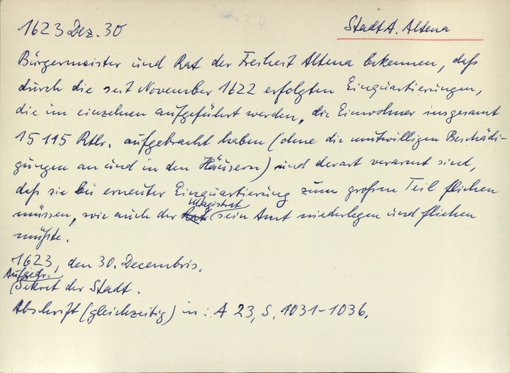 1623 Dez. 30
StadtA. Altena
Bürgermeister und Rat der Freiheit Altena bekennen, daß
durch die seit November 1622 erfolgten Einquartierungen,
die im einzelnen aufgeführt werden, die Einwohner insgesamt
15 115 Rtlr. aufgebracht haben (ohne die mutwilligen Beschädi-
gungen an und in den Häusern) und derart verarmt sind,
daß sie bei erneuter Einquartierung zum großen Teil fliehen
müssen, wie auch der Magistrat sein Amt niederlegen und fliehen
müßte.
1623, den 30. Decembris.
Aufgedr.
Sekret der Stadt.
Abschrift (gleichzeitig) in: A 23, S. 1031-1036.